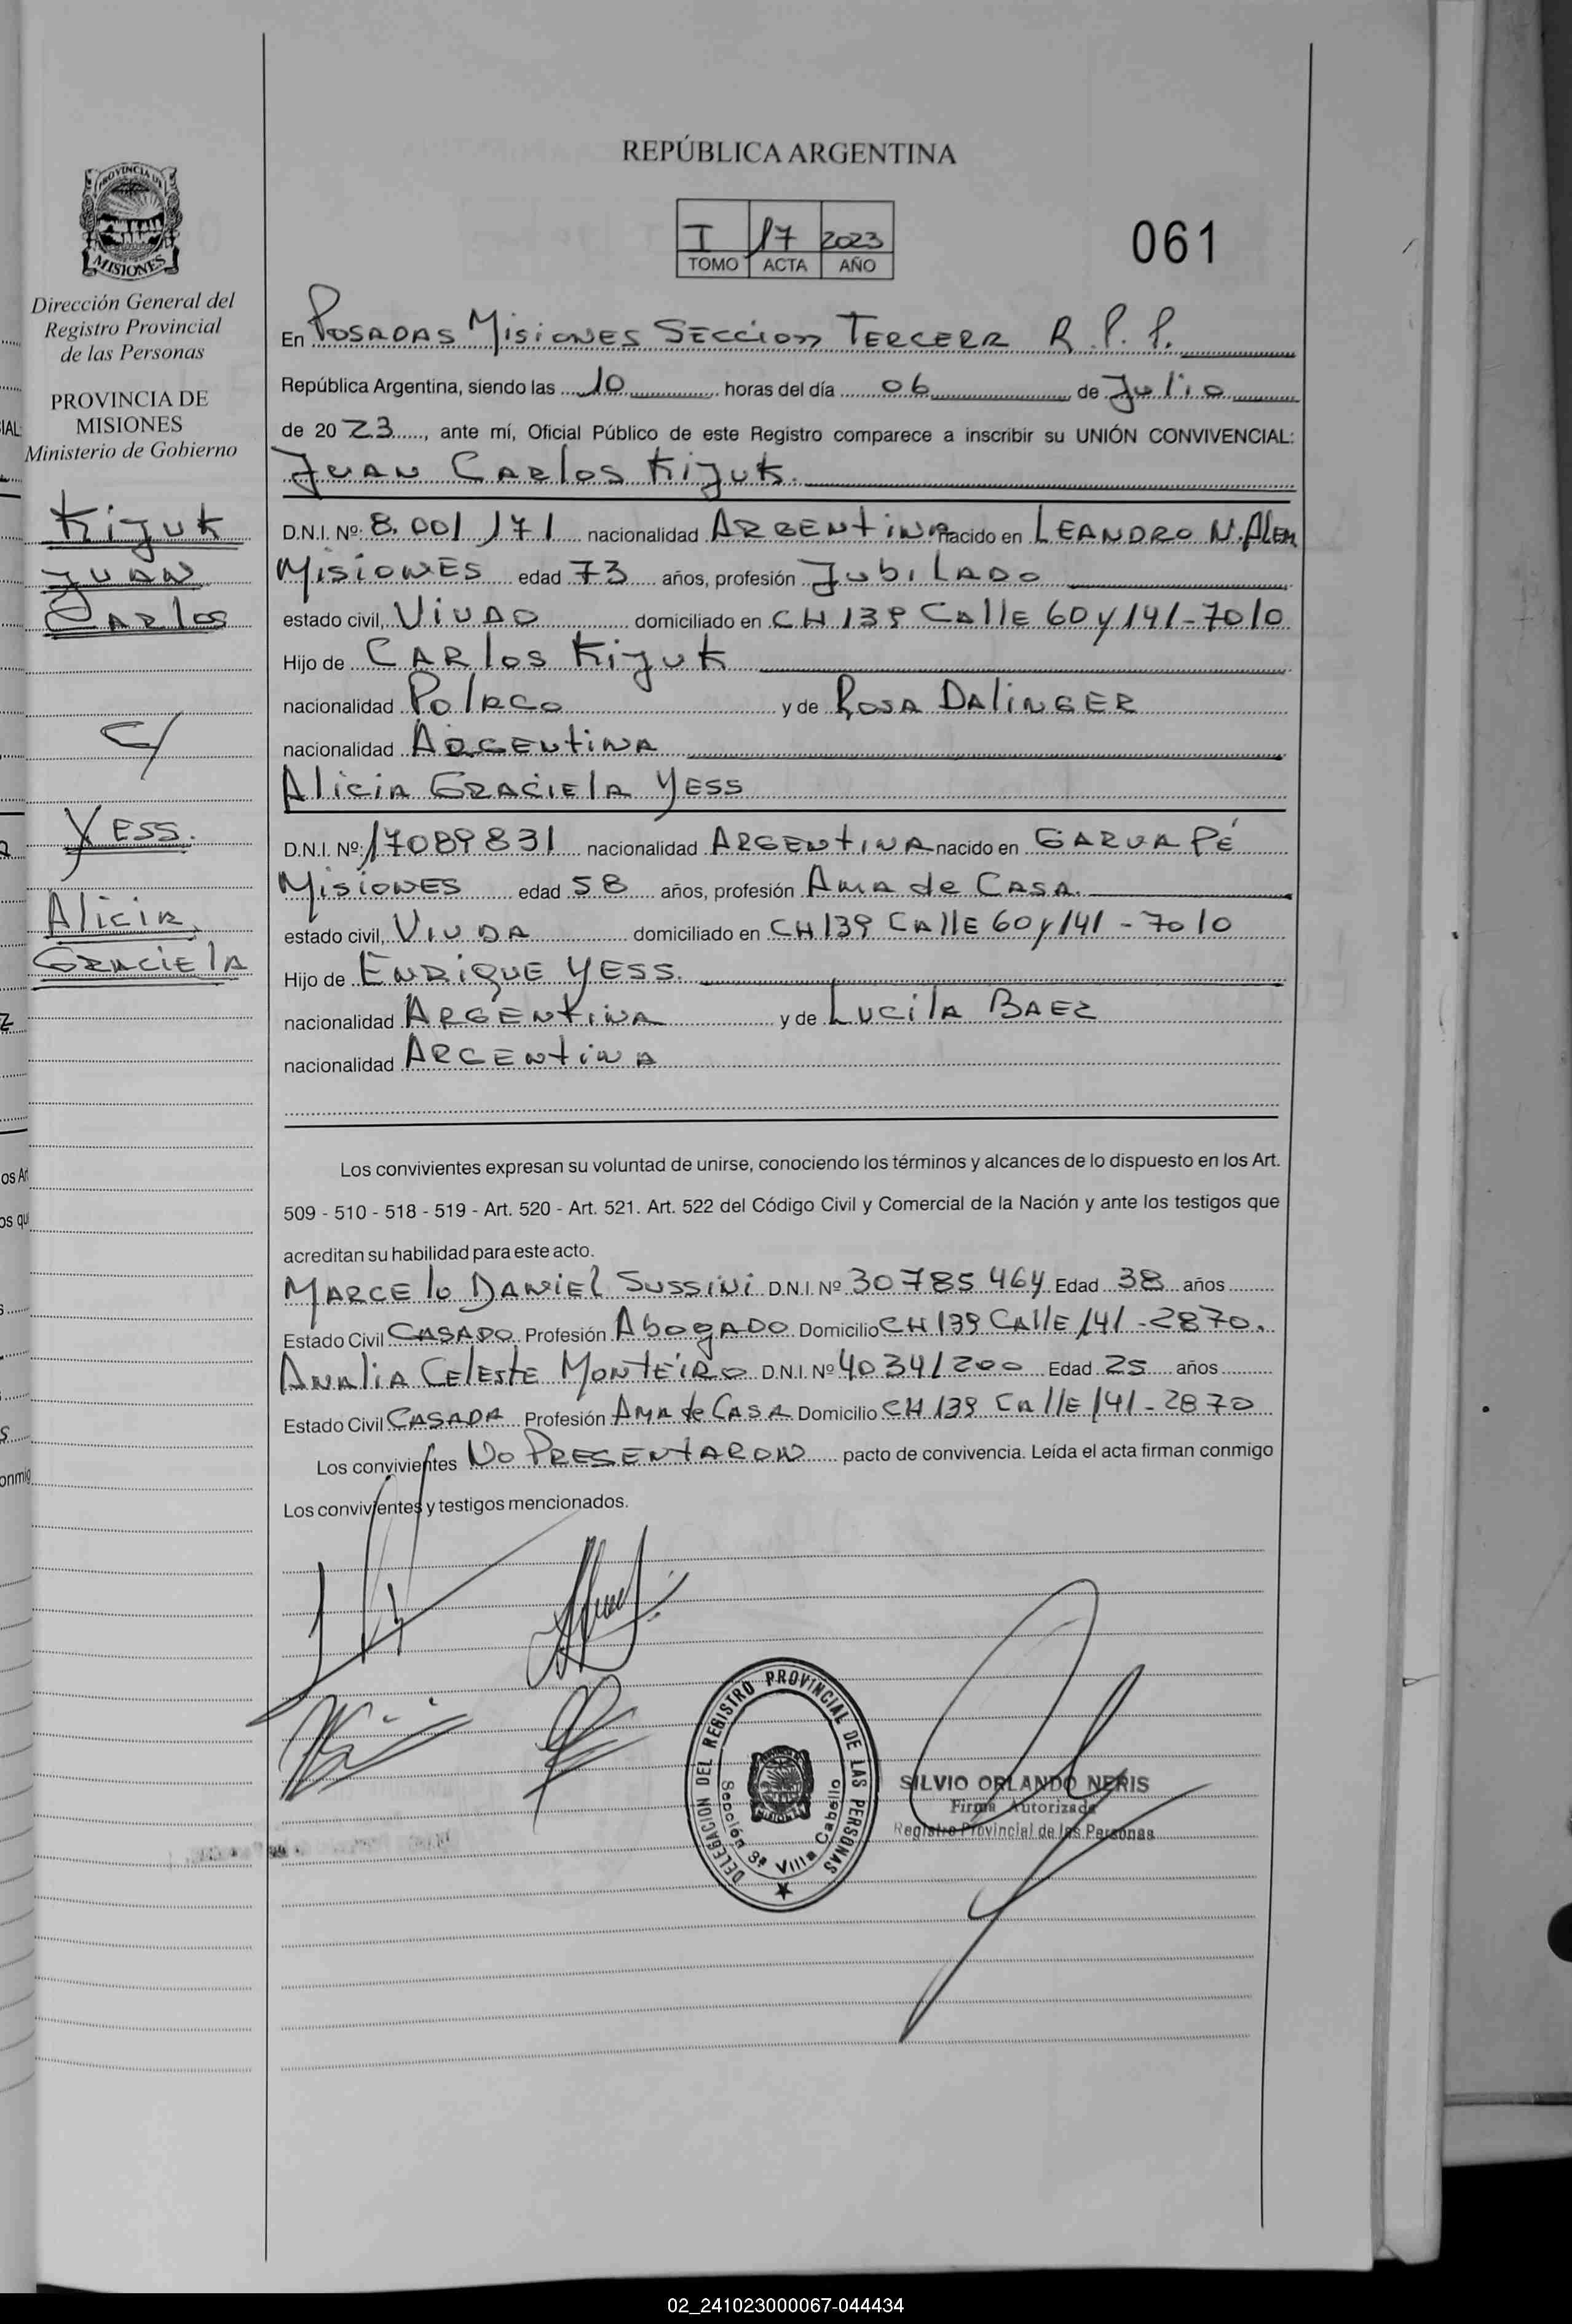 REPÚBLICA ARGENTINA
I 17 2023
TOMO ACTA AÑO
061
PROVINCIA DE
MISIONES
Dirección General del
Registro Provincial
de las Personas
PROVINCIA DE
MISIONES
Ministerio de Gobierno
Kijuk
Juan
Carlos
C/
Yess.
Alicia
Graciela
En Posadas Misiones Seccion Tercera R.P.P.
República Argentina, siendo las 10 horas del día 06 de Julio
de 2023, ante mí, Oficial Público de este Registro comparece a inscribir su UNIÓN CONVIVENCIAL:
Juan Carlos Kijuk.
D.N.I. Nº: 8.001.171 nacionalidad Argentina nacido en Leandro N. Alem
Misiones edad 73 años, profesión Jubilado
estado civil, Viudo domiciliado en CH 139 Calle 60 y 141-7010
Hijo de Carlos Kijuk
nacionalidad Polaco y de Rosa Dalinger
nacionalidad Argentina
Alicia Graciela Yess
D.N.I. Nº: 17089831 nacionalidad Argentina nacido en Garuapé
Misiones edad 58 años, profesión Ama de Casa.
estado civil, Viuda domiciliado en CH 139 Calle 60 y 141 - 7010
Hijo de Enrique Yess.
nacionalidad Argentina y de Lucila Baez
nacionalidad Argentina
Los convivientes expresan su voluntad de unirse, conociendo los términos y alcances de lo dispuesto en los Art.
509 - 510 - 518 - 519 - Art. 520 - Art. 521. Art. 522 del Código Civil y Comercial de la Nación y ante los testigos que
acreditan su habilidad para este acto.
Marcelo Daniel Sussini D.N.I. Nº 30785464 Edad 38 años
Estado Civil Casado Profesión Abogado Domicilio CH 139 Calle 141 - 2870.
Analia Celeste Monteiro D.N.I. Nº 40341200 Edad 25 años
Estado Civil Casada Profesión Ama de Casa Domicilio CH 139 Calle 141 - 2870
Los convivientes No Presentaron pacto de convivencia. Leída el acta firman conmigo
Los convivientes y testigos mencionados.
DELEGACION DEL REGISTRO PROVINCIAL DE LAS PERSONAS
Sección 3ª Villa Cabello
SILVIO ORLANDO NERIS
Firma Autorizada
Registro Provincial de las Personas
02_241023000067-044434